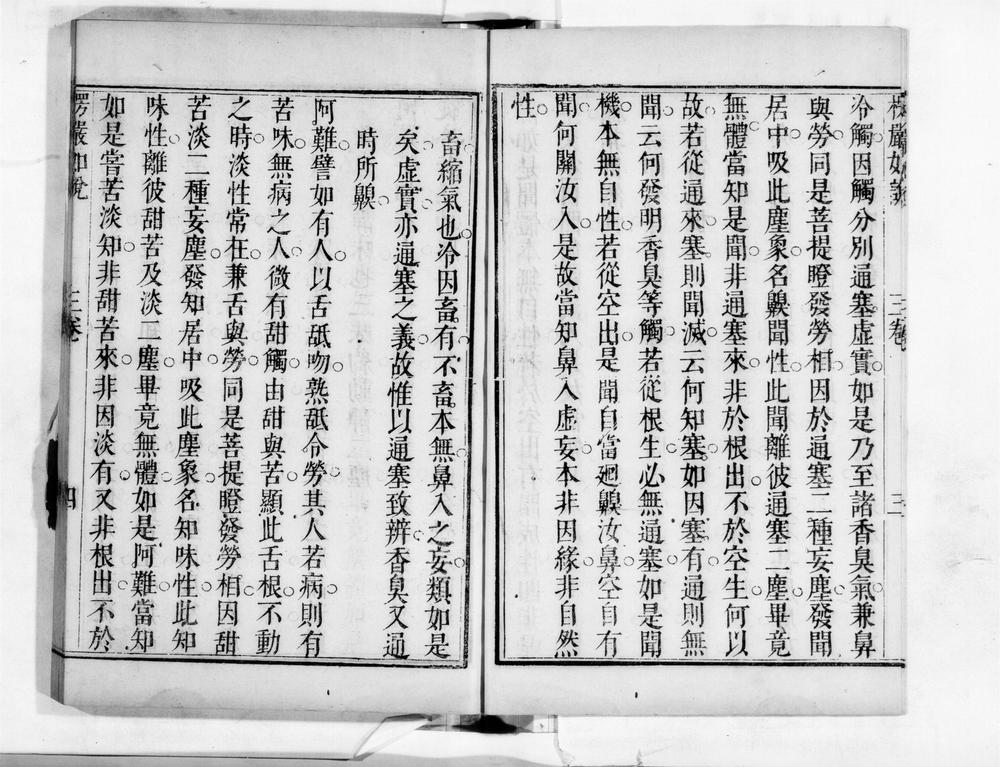 楞嚴如說
三卷
三
冷觸因觸分別通塞虛實如是乃至諸香臭氣兼鼻
與勞同是菩提瞪發勞相因於通塞二種妄塵發聞
居中吸此塵象名齅聞性此聞離彼通塞二塵畢竟
無體當知是聞非通塞來非於根出不於空生何以
故若從通來塞則聞滅云何知塞如因塞有通則無
聞云何發明香臭等觸若從根生必無通塞如是聞
機本無自性若從空出是聞自當廻齅汝鼻空自有
聞何關汝入是故當知鼻入虛妄本非因緣非自然
性
畜縮氣也冷因畜有不畜本無鼻入之妄類如是
矣虛實亦通塞之義故惟以通塞致辨香臭又通
時所齅
阿難譬如有人以舌舐吻熟舐令勞其人若病則有
苦味無病之人微有甜觸由甜與苦顯此舌根不動
之時淡性常在兼舌與勞同是菩提瞪發勞相因甜
苦淡二種妄塵發知居中吸此塵象名知味性此知
味性離彼甜苦及淡二塵畢竟無體如是阿難當知
如是嘗苦淡知非甜苦來非因淡有又非根出不於
楞嚴如說
三卷
四